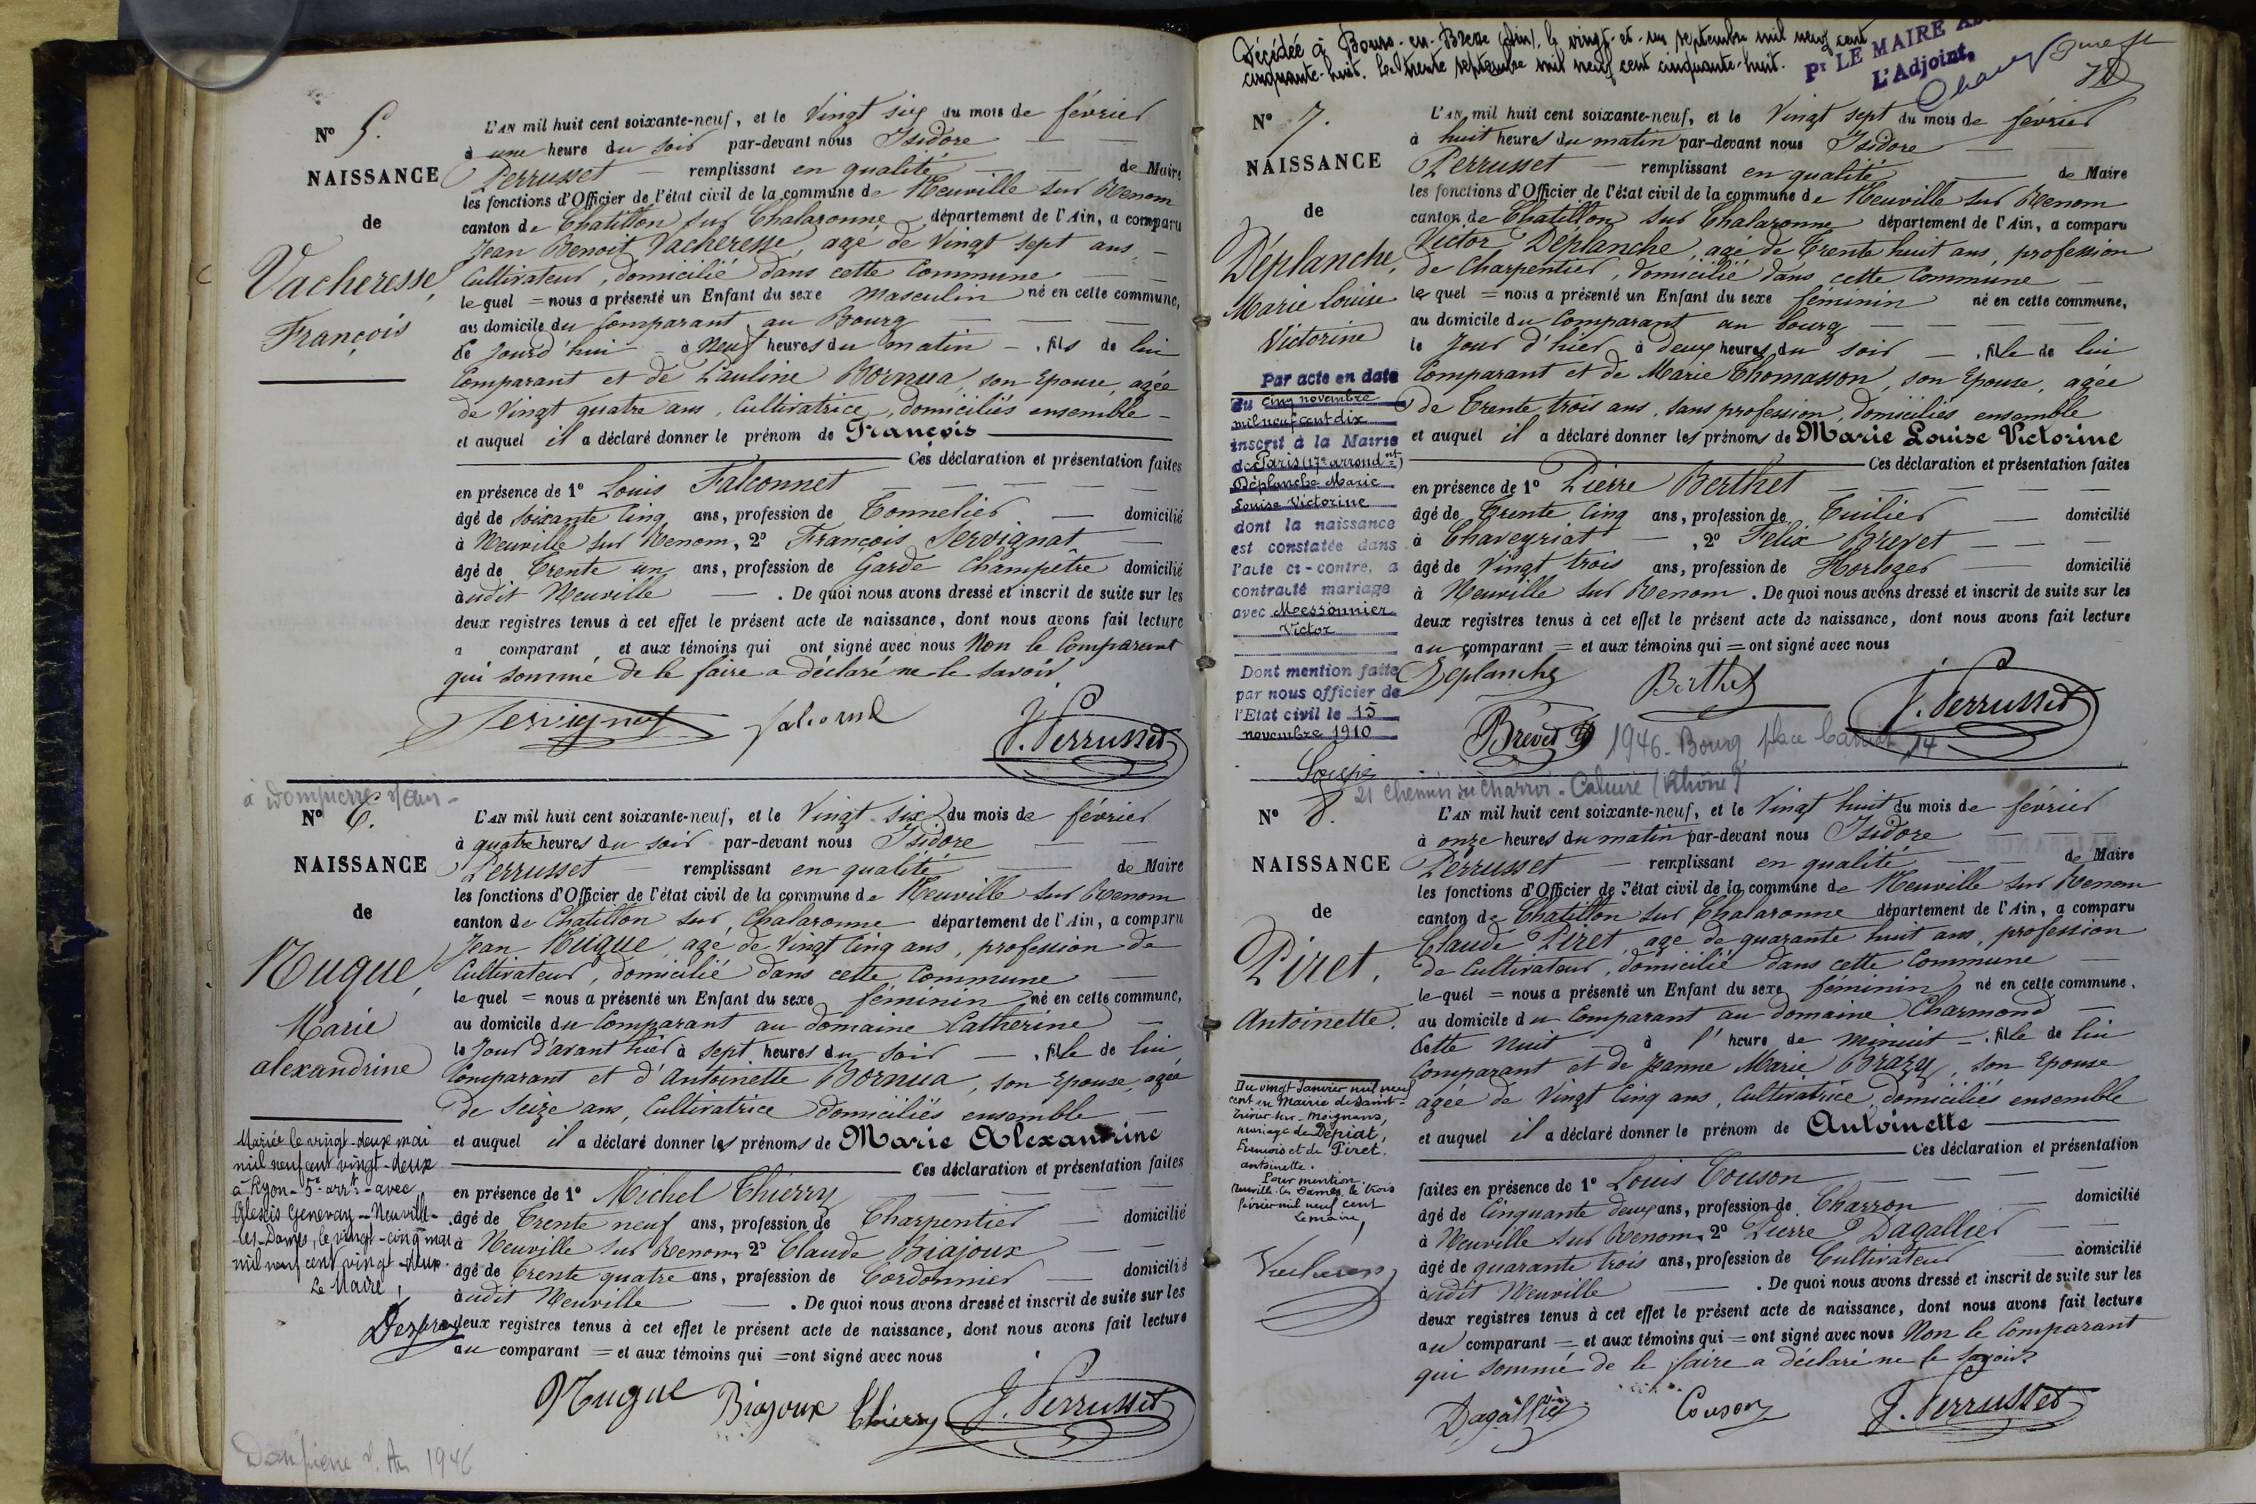 N° 5.
NAISSANCE
de
Vacheresse,
François
L'AN mil huit cent soixante-neuf, et le Vingt six du mois de février
à une heure du soir par-devant nous Isidore
Perrusset remplissant en qualité de Maire
les fonctions d'Officier de l'état civil de la commune de Neuville sur Renom
canton de Chatillon sur Chalaronne département de l'Ain, a comparu
Jean Benoit Vacheresse, agé de Vingt sept ans,
Cultivateur, domicilié dans cette Commune
le quel = nous a présenté un Enfant du sexe masculin né en cette commune,
au domicile du Comparant au Bourg
Ce jourd'hui à Neuf heures du matin, fils de lui
Comparant et de Pauline Bornua, son Epouse, agée
de Vingt quatre ans, Cultivatrice, domiciliés ensemble
et auquel il a déclaré donner le prénom de François
Ces déclaration et présentation faites
en présence de 1° Louis Falconnet
âgé de soixante Cinq ans, profession de Tonnelier domicilié
à Neuville sur Renom, 2° François Servignat
âgé de Trente un ans, profession de Garde Champêtre domicilié
àudit Neuville. De quoi nous avons dressé et inscrit de suite sur les
deux registres tenus à cet effet le présent acte de naissance, dont nous avons fait lecture
a comparant, et aux témoins qui ont signé avec nous Non le Comparant
qui sommé de le faire a déclaré ne le savoir
Servignat
J. Perrusset
à Dompierre s/Ain
N° 6.
NAISSANCE
de
Nugue,
Marie
alexandrine
Mariée le vingt-deux mai
mil neuf cent vingt-deux
à Lyon-5e arrt-avec
Alexis Genevay-Neuville-
les-Dames, le vingt-cinq mai
mil neuf cent vingt-deux.
Le Maire,
L'AN mil huit cent soixante-neuf, et le Vingt six du mois de février
à quatre heures du soir par-devant nous Isidore
Perrusset remplissant en qualité de Maire
les fonctions d'Officier de l'état civil de la commune de Neuville sur Renom
canton de Chatillon sur Chalaronne département de l'Ain, a comparu
Jean Nugue, agé de Vingt Cinq ans, profession de
Cultivateur, domicilié dans cette Commune
le quel = nous a présenté un Enfant du sexe féminin né en cette commune,
au domicile du Comparant au domaine Catherine
le Jour d'avant hier à sept heures du soir, fille de lui
Comparant et d'Antoinette Bornua, son Epouse, agée
de Seize ans, Cultivatrice domiciliés ensemble
et auquel il a déclaré donner les prénoms de Marie Alexandrine
Ces déclaration et présentation faites
en présence de 1° Michel Thierry
âgé de Trente neuf ans, profession de Charpentier domicilié
à Neuville sur Renom, 2° Claude Biajoux
âgé de Trente quatre ans, profession de Cordonnier domicilié
àudit Neuville. De quoi nous avons dressé et inscrit de suite sur les
deux registres tenus à cet effet le présent acte de naissance, dont nous avons fait lecture
au comparant = et aux témoins qui = ont signé avec nous
Nugue Biajoux Thierry J. Perrusset
Dompierre s. Ain 1946
Décédée à Bourg-en-Bresse (Ain), le vingt-et-un septembre mil neuf cent
cinquante-huit. Le trente septembre mil neuf cent cinquante-huit.
Pr LE MAIRE
L'Adjoint,
N° 7.
NAISSANCE
de
Déplanche,
Marie Louise
Victorine
Par acte en date
du cinq novembre
mil neuf cent dix
inscrit à la Mairie
de Paris (17e arrondnt)
Déplanche Marie
Louise Victorine
dont la naissance
est constatée dans
l'acte ci-contre, a
contracté mariage
avec Messonnier
Victor
Dont mention faite
par nous officier de
l'Etat civil le 15
novembre 1910
L'AN mil huit cent soixante-neuf, et le Vingt sept du mois de février
à huit heures du matin par-devant nous Isidore
Perrusset remplissant en qualité de Maire
les fonctions d'Officier de l'état civil de la commune de Neuville sur Renom
canton de Chatillon sur Chalaronne département de l'Ain, a comparu
Victor Déplanche, agé de Trente huit ans, profession
de Charpentier, domicilié dans cette Commune
le quel = nous a présenté un Enfant du sexe féminin né en cette commune,
au domicile du Comparant au bourg
le Jour d'hier à deux heures du soir, fille de lui
Comparant et de Marie Thomasson, son Epouse, agée
de Trente trois ans, sans profession, domiciliés ensemble
et auquel il a déclaré donner les prénoms de Marie Louise Victorine
Ces déclaration et présentation faites
en présence de 1° Pierre Berthet
âgé de Trente Cinq ans, profession de Tuilier domicilié
à Chaveyriat, 2° Félix Brevet
âgé de Vingt trois ans, profession de Horloger domicilié
à Neuville sur Renom. De quoi nous avons dressé et inscrit de suite sur les
deux registres tenus à cet effet le présent acte de naissance, dont nous avons fait lecture
au comparant = et aux témoins qui = ont signé avec nous
Déplanche Berthet J. Perrusset
Brevet
1946 - Bourg, place Carriat, 14
21 Chemin du Charroi - Caluire (Rhône)
N° 8.
NAISSANCE
de
Piret,
Antoinette.
Du vingt Janvier mil neuf
cent en Mairie de Saint-
Trivier-sur-Moignans,
mariage de Dépriat,
François et de Piret.
antoinette.
Pour mention.
Neuville les Dames, le trois
février mil neuf cent
Le maire,
L'AN mil huit cent soixante-neuf, et le Vingt huit du mois de février
à onze heures du matin par-devant nous Isidore
Perrusset remplissant en qualité de Maire
les fonctions d'Officier de l'état civil de la commune de Neuville sur Renom
canton de Chatillon sur Chalaronne département de l'Ain, a comparu
Claude Piret, agé de quarante huit ans, profession
de Cultivateur, domicilié dans cette Commune
le quel = nous a présenté un Enfant du sexe féminin né en cette commune,
au domicile du Comparant au domaine Charmond
Cette nuit à l'heure de minuit, fille de lui
Comparant et de Jeanne Marie Brazy, son Epouse
agée de Vingt Cinq ans, Cultivatrice, domiciliés ensemble
et auquel il a déclaré donner le prénom de Antoinette
Ces déclaration et présentation
faites en présence de 1° Louis Couson
âgé de Cinquante deux ans, profession de Charron domicilié
à Neuville sur Renom, 2° Pierre Dagallier
âgé de quarante trois ans, profession de Cultivateur domicilié
àudit Neuville. De quoi nous avons dressé et inscrit de suite sur les
deux registres tenus à cet effet le présent acte de naissance, dont nous avons fait lecture
au comparant = et aux témoins qui = ont signé avec nous Non le Comparant
qui sommé de le faire a déclaré ne le savoir
Dagallier Couson J. Perrusset